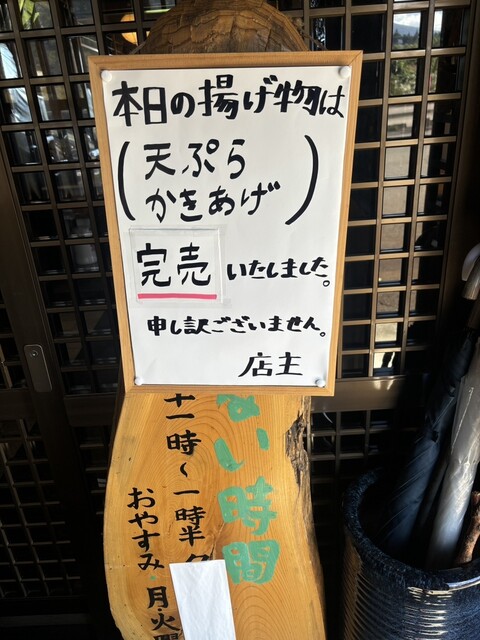 本日の揚げ物は
(天ぷら
かきあげ)
完売いたしました。
申し訳ございません。
店主
ない時間
十一時〜一時半
おやすみ・月・火曜